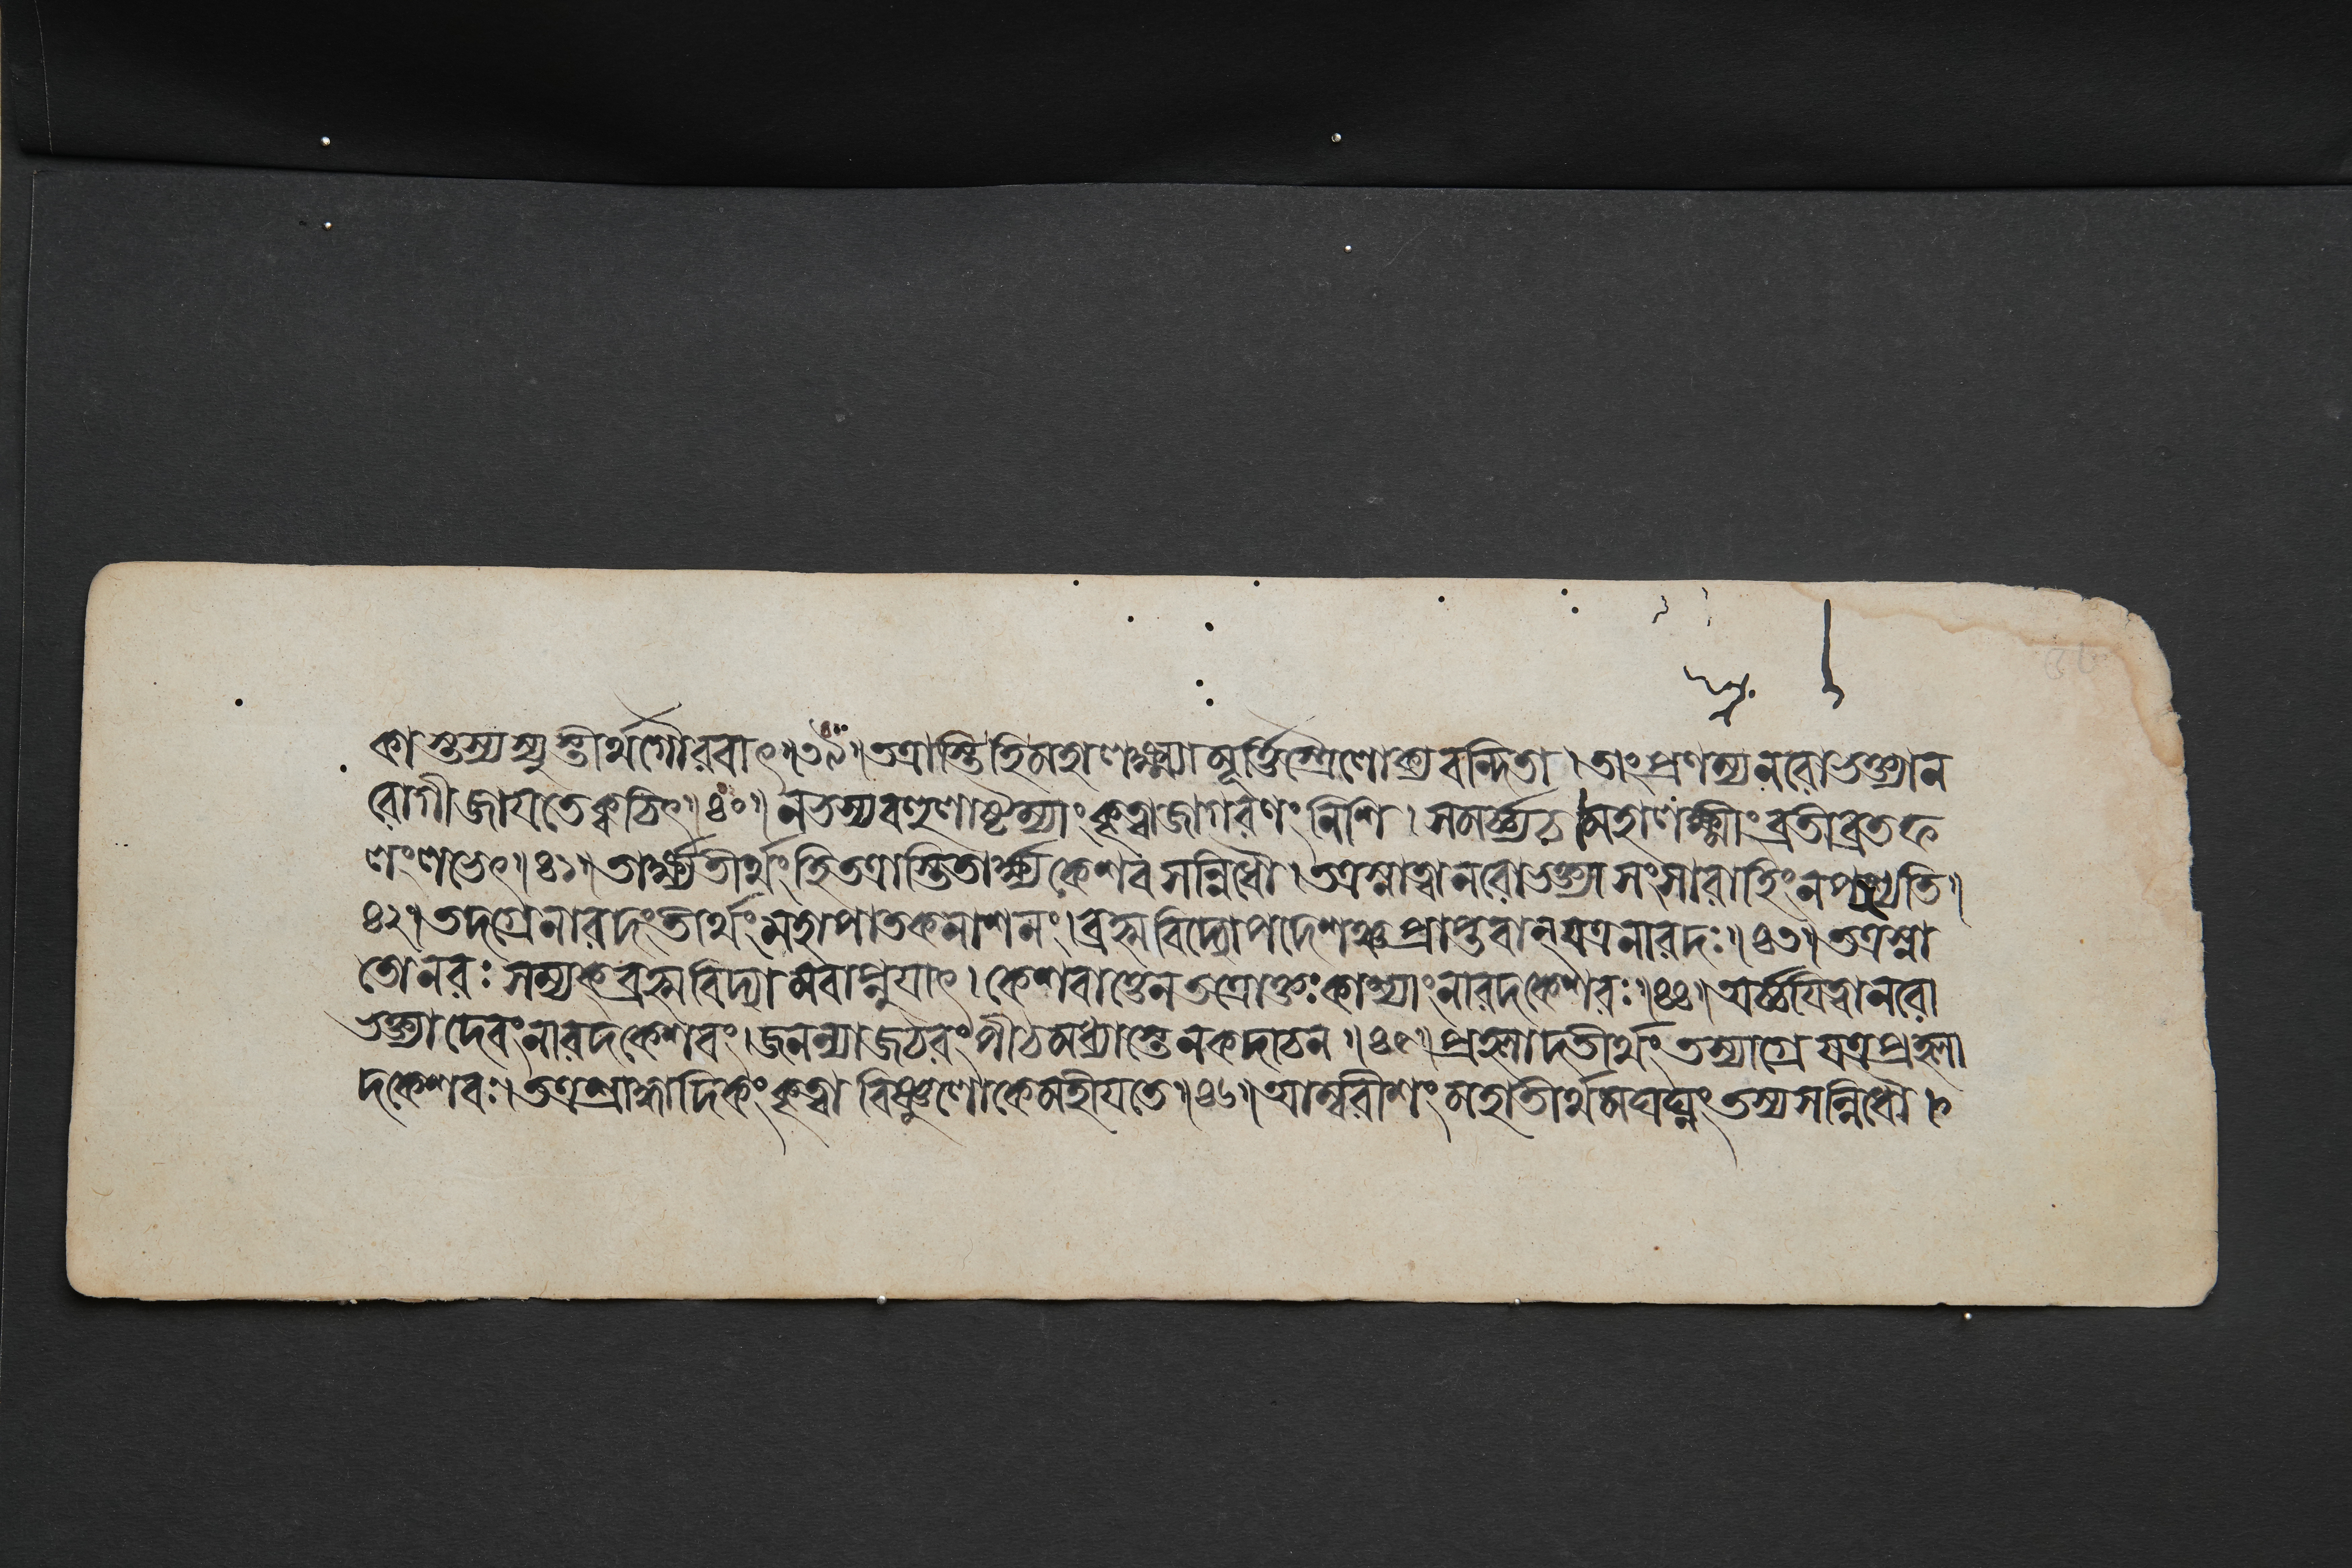 কাস্তস্য স্যুস্তীর্থগৌরবাৎ॥৩৯॥তত্রাস্তি হি মহালক্ষ্ম্যা মূর্ত্তিস্ত্রৈলোক্যবন্দিতা।তাং প্রণম্য নরো ভক্ত্যা ন
রোগী জায়তে ক্বচিৎ॥৪০॥নভস্য বহুলাষ্টম্যাং কৃত্বা জাগরণং নিশি।সমর্চ্চ্য চ মহালক্ষ্মীং ব্রতী ব্রতফ
লং লভেৎ॥৪১॥তার্ক্ষ্যতীর্থং হি তত্রাস্তি তার্ক্ষ্যকেশব সন্নিধৌ।তত্র স্নাত্বা নরো ভক্ত্যা সংসারাহিং ন পশ্যতি॥
৪২॥তদগ্রে নারদং তীর্থং মহাপাতকনাশনং।ব্রহ্মবিদ্যোপদেশঞ্চ প্রাপ্তবান্ যত্র নারদঃ॥৪৩॥তত্র স্না
তো নরঃ সম্যক্ ব্রহ্মবিদ্যামবাপ্নুয়াৎ।কেশবাত্তেন তত্রোক্তঃ কাশ্যাং নারদকেশবঃ॥৪৪॥অর্চ্চয়িত্বা নরো
ভক্ত্যা দেবং নারদকেশবং।জনন্যা জঠরং পীঠমধ্যাস্তে ন কদাচন॥৪৫॥প্রহ্লাদতীর্থং তস্যাগ্রে যত্র প্রহ্লা
দকেশবঃ।তত্র শ্রাদ্ধাদিকং কৃত্বা বিষ্ণুলোকে মহীয়তে॥৪৬॥আম্বরীশং মহাতীর্থমঘঘ্নং তস্য সন্নিধৌ।